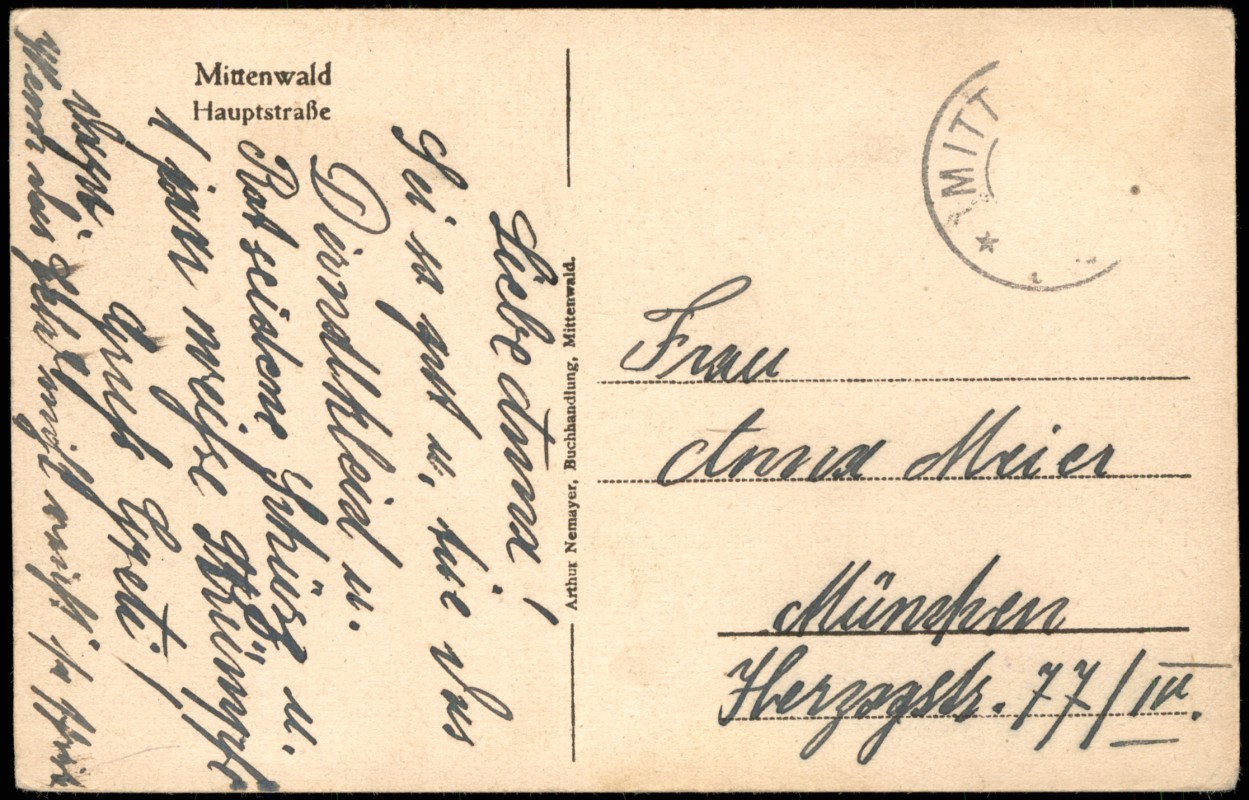 Mittenwald
Hauptstraße
Liebe Anna!
Sei so gut u. tue das
Dirndlkleid u.
Rot seidene Schürz u.
1 paar weiße Strümpfe
Gruß Gredi!
Wenn das nicht so
Arthur Nemayer, Buchhandlung, Mittenwald.
MITT
Frau
Anna Meier
München
Herzogstr. 77/III.